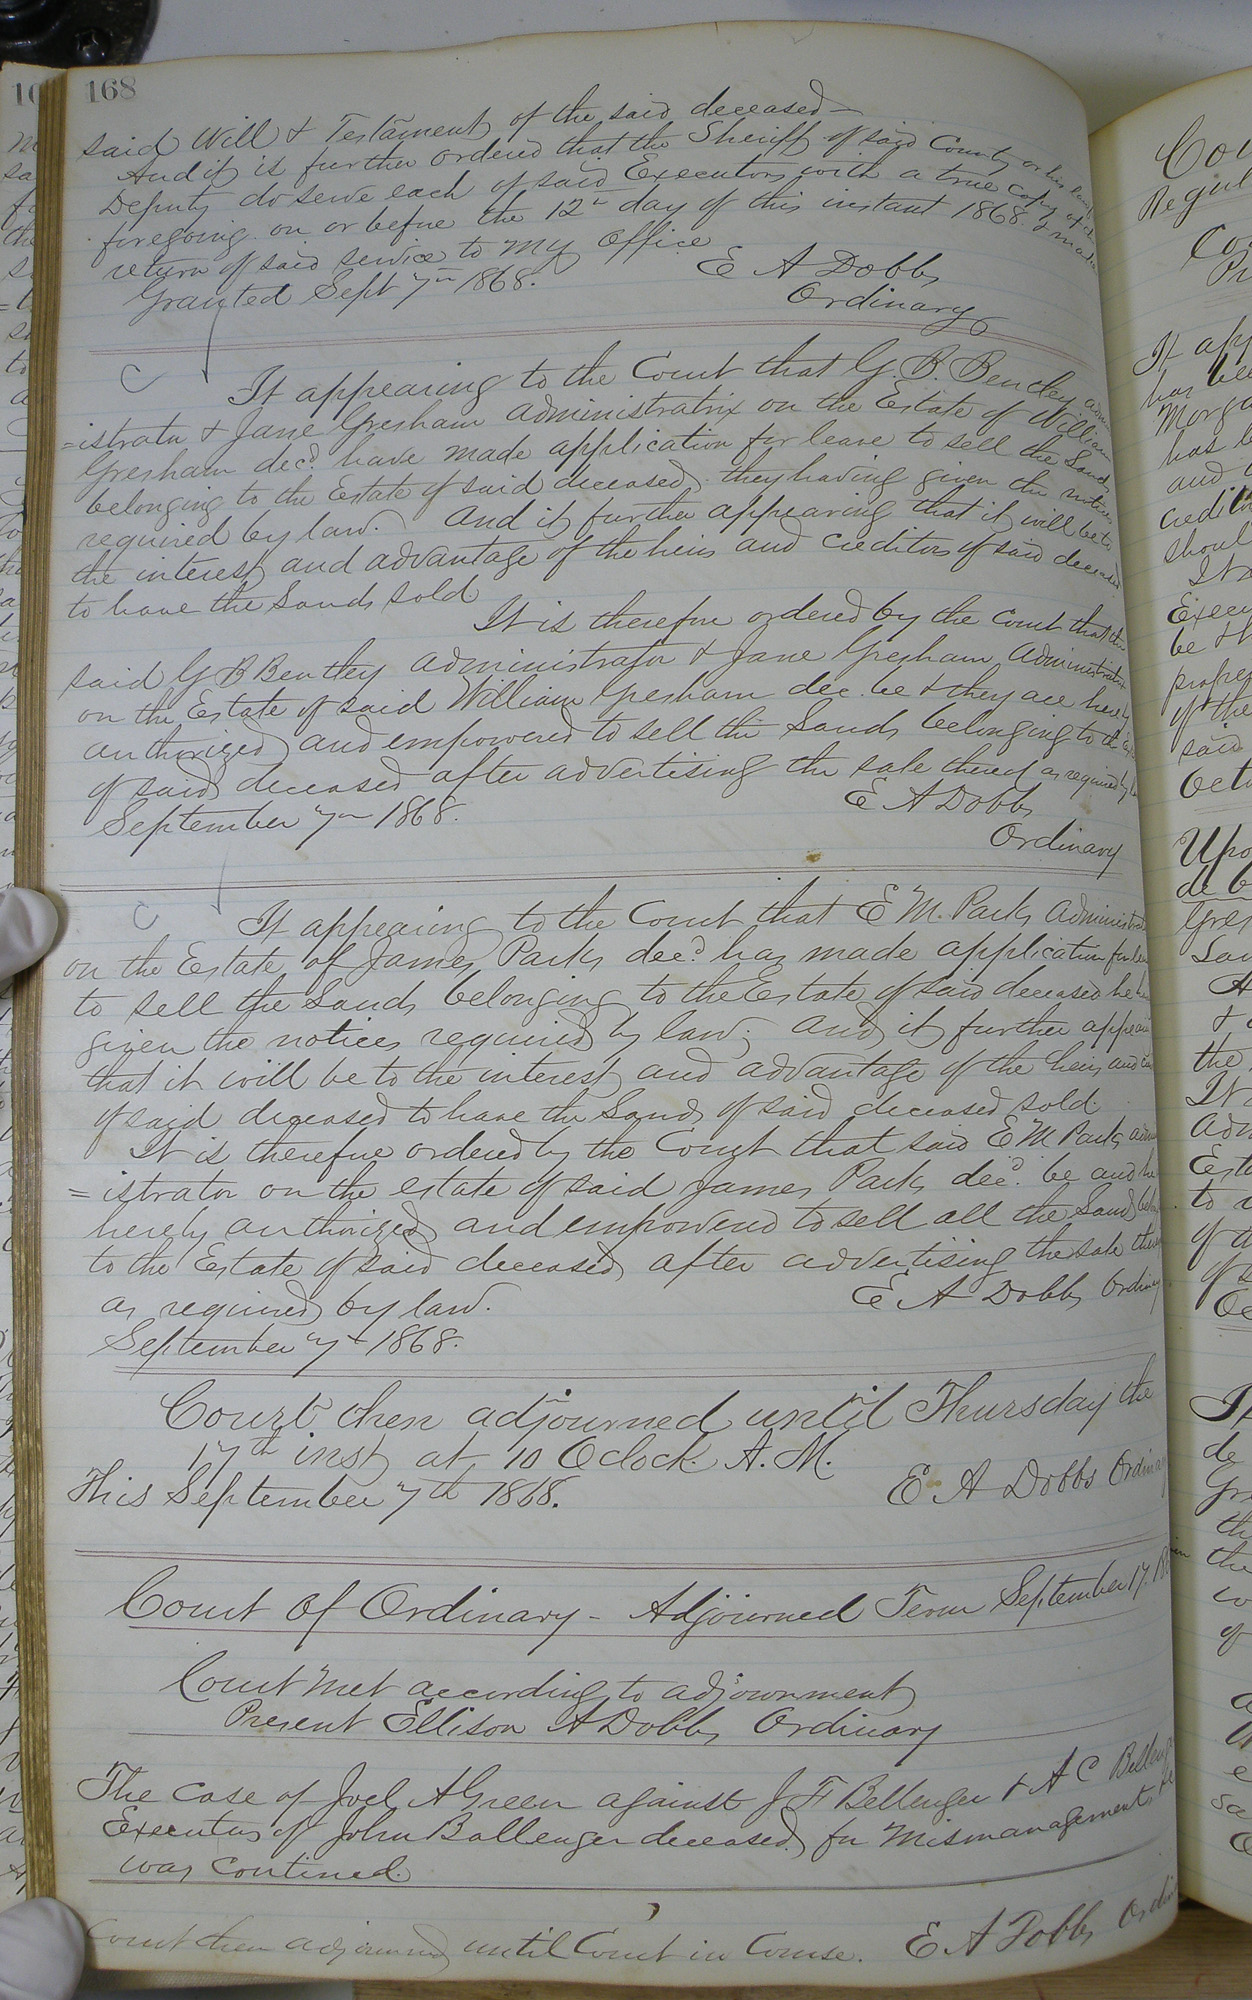 168
said Will & Testament of the said deceased—
And it is further ordered that the Sheriff of said County or his
Deputy do serve each of said Executors with a true copy of
foregoing on or before the 12th day of this instant 1868 &
return of said service to my office
Granted Sept 7th 1868. E A Dobbs
Ordinary
It appearing to the Court that G. B. Bentley admin
=istrator & Jane Gresham administratrix on the Estate of William
Gresham decd. have made application for leave to sell the Lands
belonging to the Estate of said deceased, they having given the notices
required by law. And it further appearing that it will be to
the interest and advantage of the heirs and creditors of said deceased
to have the Lands sold
It is therefore ordered by the Court that the
said G B Bentley administrator & Jane Gresham administratrix
on the Estate of said William Gresham dec. be & they are hereby
authorized and empowered to sell the Lands belonging to the
of said deceased after advertising the sale thereof as required by
September 7th 1868. E A Dobbs
Ordinary
It appearing to the Court that E M. Parks Administrator
on the Estate of James Parks decd. has made application for
to sell the Lands belonging to the Estate of said deceased he
given the notices required by law; and it further appearing
that it will be to the interest and advantage of the heirs and
of said deceased to have the Lands of said deceased sold.
It is therefore ordered by the Court that said E M Parks admin
=istrator on the estate of said James Parks decd. be and he
hereby authorized and empowered to sell all the Lands
to the Estate of said deceased after advertising the sale
as required by law. E A Dobbs Ordinary
September 7th 1868.
Court then adjourned until Thursday the
17th inst at 10 Oclock. A. M.
This September 7th 1868. E A Dobbs Ordinary
Court Of Ordinary - Adjourned Term September 17,
Court met according to adjournment
Present Ellison A Dobbs Ordinary
The case of Joel A Green against J F Bellenger & A C
Executors of John Ballenger deceased for Mismanagement
was contined.
Court then adjourned until Court in Course. E A Dobbs